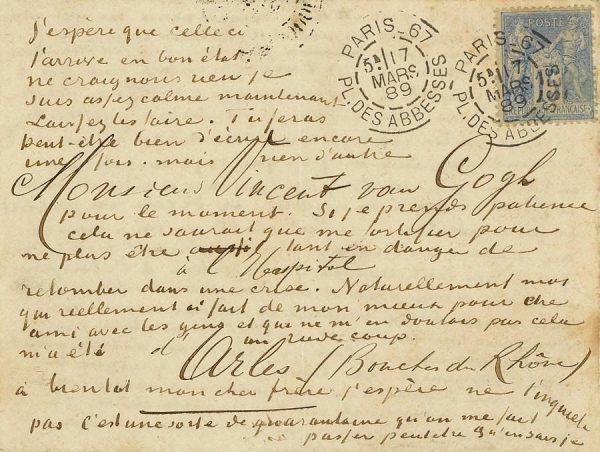 J'espère que celle ci
t'arrive en bon état.
ne craignons rien je
suis assez calme maintenant
Laissez les faire. Tu feras
peut-être bien d'écrire encore
une fois. mais rien d'autre
Monsieur Vincent van Gogh
pour le moment. Si je prends patience
cela ne saurait que me fortifier pour
ne plus être tant en danger de
à l'Hospital
retomber dans une crise. Naturellement moi
qui reellement ai fait de mon mieux pour être
ami avec les gens et qui ne m'en doutais pas cela
m'a été un rude coup.
d'Arles (Bouches du Rhône)
à bientot mon cher frère j'espère ne t'inquiete
pas c'est une sorte de quarantaine qu'on me fait
passer peutetre qu'en sais je
PARIS . 67
5E 17
MARS
89
PL. DES ABBESSES
PARIS . 67
5E 17
MARS
89
PL. DES ABBESSES
POSTE
FRANÇAISE